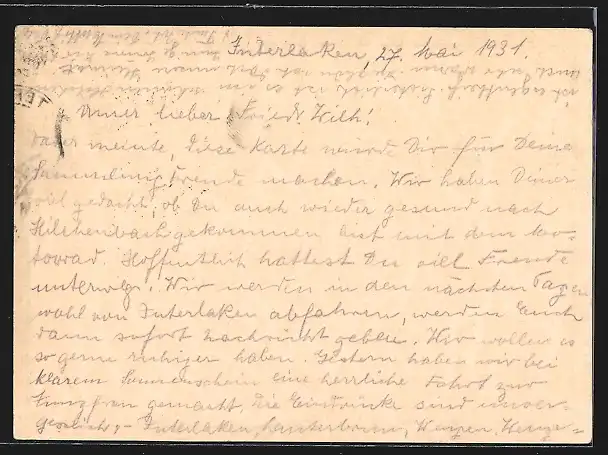 Interlaken, 27. Mai 1931.
Unser lieber Friedr. Wilh!
Vater meinte, diese Karte würde Dir für Deine
Sammlung Freude machen. Wir haben Deiner
viel gedacht, ob Du auch wieder gesund nach
Hilchenbach gekommen bist mit dem Mo-
torrad. Hoffentlich hattest Du viel Freude
unterwegs. Wir werden in den nächsten Tagen
wohl von Interlaken abfahren, werden Euch
dann sofort Nachricht geben. Wir wollen es
so gerne ruhiger haben. Gestern haben wir bei
klarem Sonnenschein eine herrliche Fahrt zur
Jungfrau gemacht, die Eindrücke sind unver-
gesslich, Interlaken, Lauterbrunn, Wengen, Wenge-